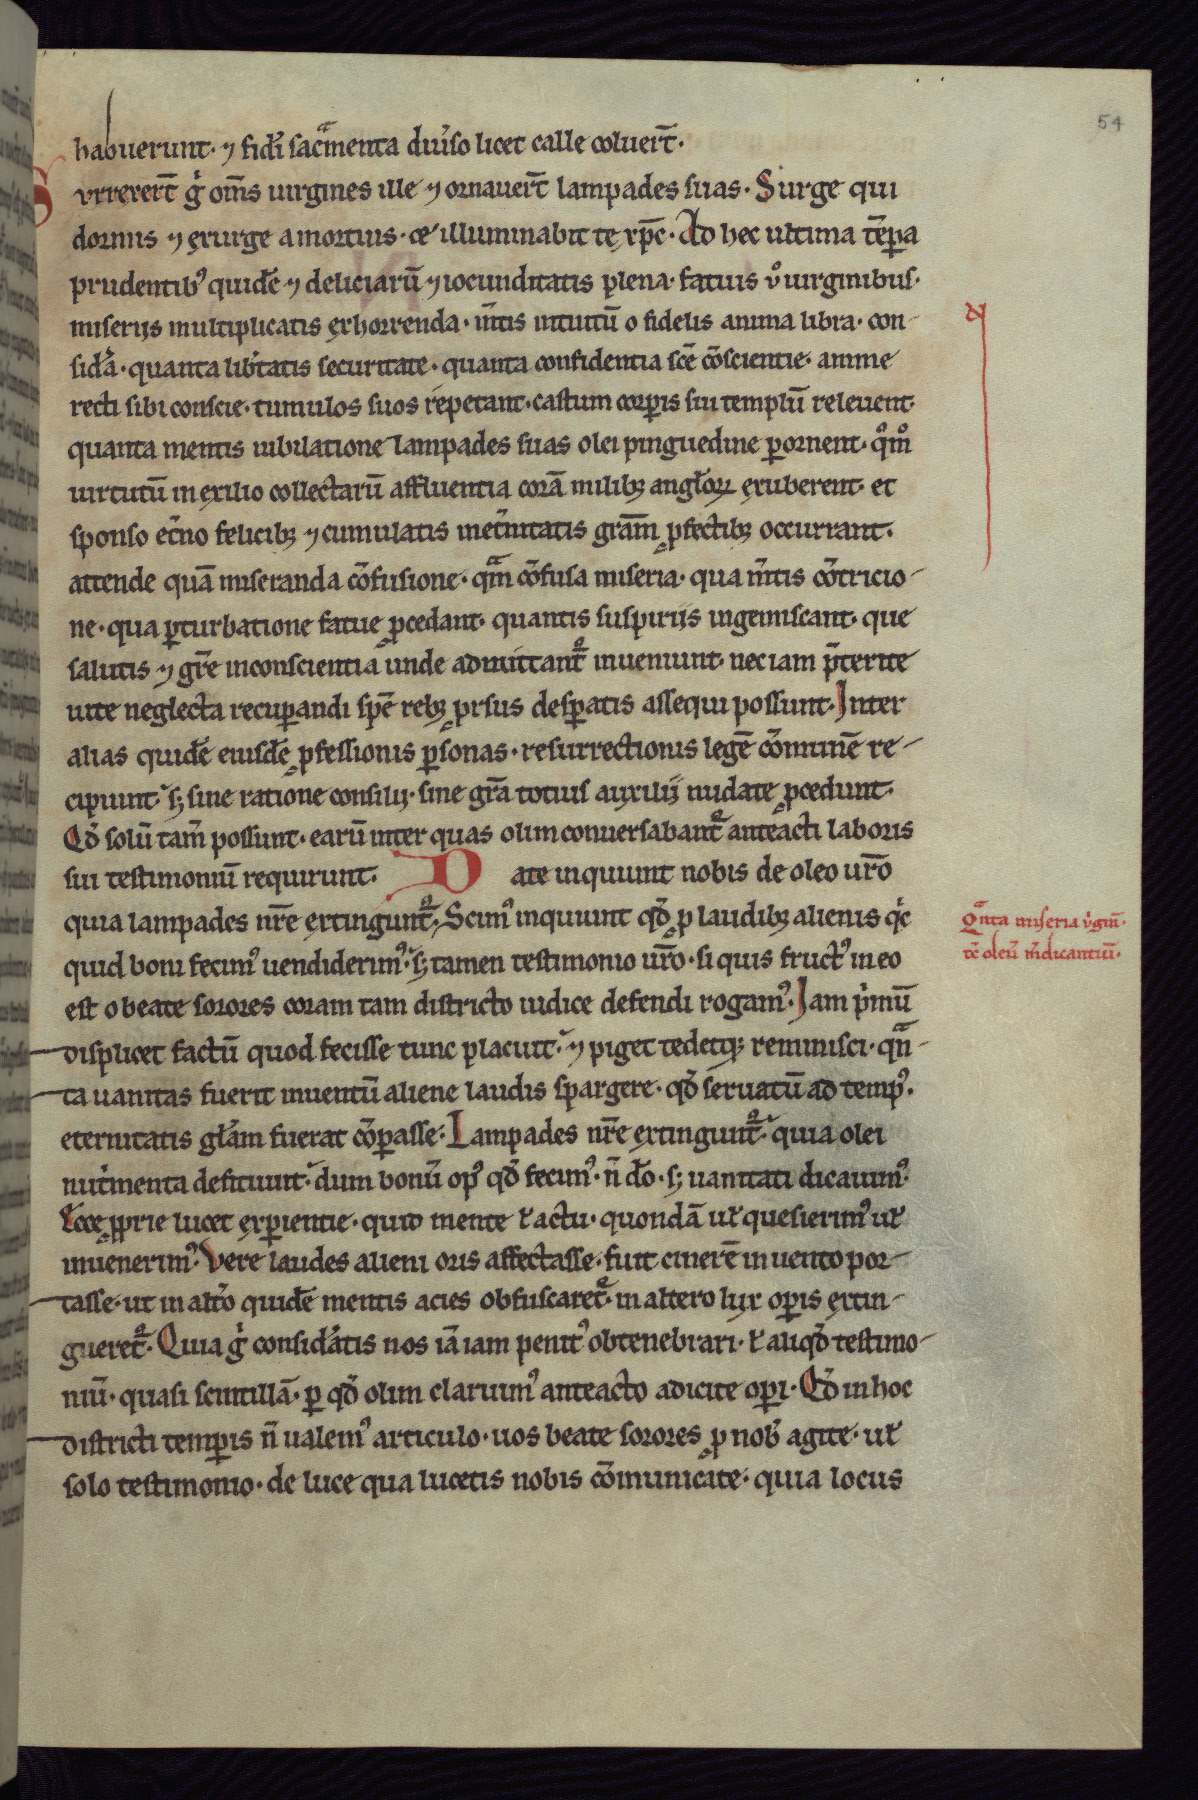 54
habuerunt· ⁊ fidei sacͣmenta diu͛so licet calle coluert̄·
Surrexert̄ gͥ om̄s uirgines ille ⁊ ornauert̄ lampades suas· Surge qui
dormis ⁊ exurge a mortuis· ⁊ illuminabit te xp̄c· Ad hec ultima tēpa
prudentibꝰ quidē ⁊ deliciarū ⁊ iocunditatis plena· fatuis vͦ uirginibus·
miseriis multiplicatis exhorrenda· m̄tis intuitū o fidelis anima libra· con-
sid͛a· quanta lib͛tatis securitate· quanta confidentia scē cōscientie· anime
recti sibi conscie· tumulos suos repetant· castum corꝑis sui templū releuent·
quanta mentis iubilatione lampades suas olei pinguedine ꝑornent· qͦmͦ
uirtutū in exilio collectarū affluentia corā milibꝫ angłoꝝ exuberent· et
sponso et͛no felicibꝫ ⁊ cumulatis in et͛nitatis gram̄ ꝓfectibꝫ occurrant·
attende quā miseranda cōfusione· qͣm cōfusa miseria· qua m̄tis cōtricio-
ne· qua ꝑturbatione fatue ꝓcedant· quantis suspiriis ingemiscant· que
salutis ⁊ gr̄e in conscientia unde admittant᷑ inueniunt· nec iam p̄terite
uite neglecta recuꝑandi spē rebꝫ ꝓrsus desꝑatis assequi possunt· Inter
alias quidē eiusdē ꝓfessionis ꝑsonas· resurrectionis legē cōmunē re-
cipiunt· sꝫ sine ratione consilii· sine gr̄a totius auxilii nudate ꝓcedunt·
Qd̄ solū tam̄ possunt· earū inter quas olim conuersabant᷑ anteacti laboris
sui testimoniū requirunt· Date inquiunt nobis de oleo ur̄o
quia lampades nr̄e extingunt᷑· Scimꝰ inquiunt qd̄ ꝓ laudibꝫ alienis qͥc
quid boni fecimꝰ uendiderimꝰ· sꝫ tamen testimonio ur̄o· si quis fructꝰ in eo
est o beate sorores coram tam districto iudice defendi rogamꝰ· Iam pͥmū
displicet factū quod fecisse tunc placuit· ⁊ piget tedetqꝫ reminisci· qͣn-
ta uanitas fuerit inuentū aliene laudis spargere· qd̄ seruatū ad tempꝰ·
eternitatis głam fuerat cōparasse· Lampades nr̄e extingunt᷑· quia olei
nut͛menta deficiunt· dum bonū opꝰ qd̄ fecimꝰ· n̄ do· sꝫ uanitati dicauimꝰ·
Ecce ꝓprie lucet exꝑientie· quid mente ł actu· quondā uł quesierimꝰ uł
inuenerimꝰ· Vere laudes alieni oris affectasse· fuit cinerē in uento por-
tasse· ut in alt͛o quidē mentis acies obfuscaret᷑· in altero lux oꝑis extin-
gueret᷑· Quia gͥ consid͛atis nos iā iam penitꝰ obtenebrari· ł aliqd̄ testimo-
niū· quasi scintillā· ꝑ qd̄ olim claruimꝰ anteacto adicite oꝑi· Qd̄ in hoc
districti temꝑis n̄ ualemꝰ articulo· uos beate sorores ꝓ nob̄ agite· uł
solo testimonio· de luce qua lucetis nobis cōmunicate· quia locus
Qͣnta miseria v͛gin̄·
oleū m̄dicantiū·